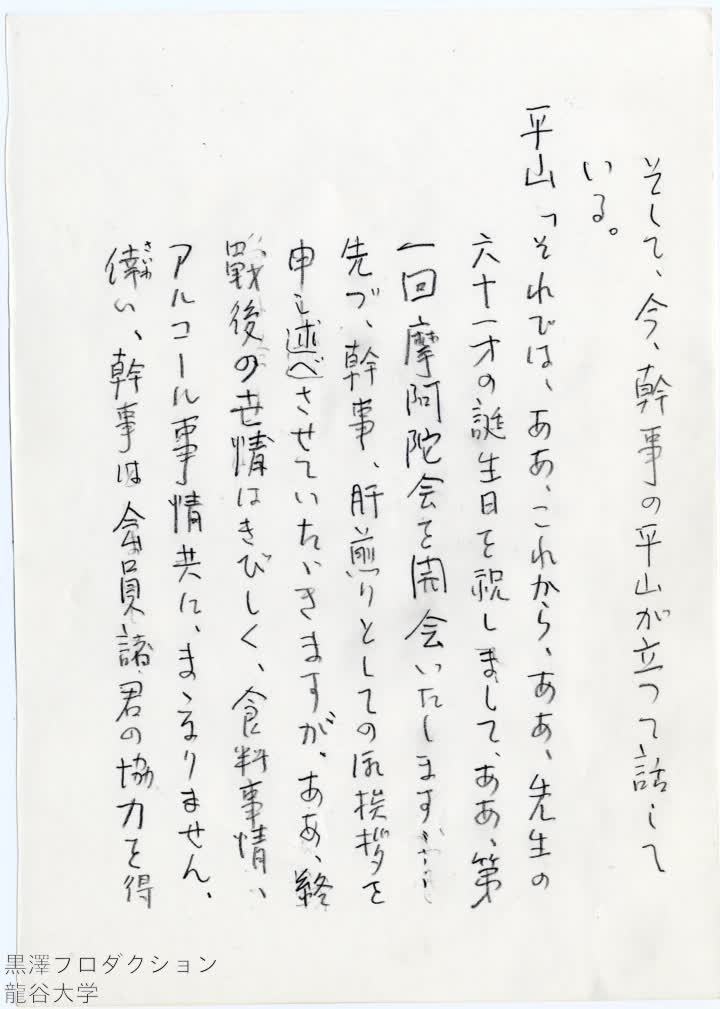 そして、今、幹事の平山が立つて話して
いる。
平山「それでは、ああ、これから、ああ、先生の
六十一才の誕生日を祝しまして、ああ、第
一回摩阿陀会を開会いたします……
先づ、幹事、肝煎りとしての御挨拶を
申し述べさせていたゞきますが、ああ、終
戰後の世情はきびしく、食料事情、
アルコール事情共に、まゝなりません、
倖い、幹事は會員諸君の協力を得
さいわ
黒澤プロダクション
龍谷大学